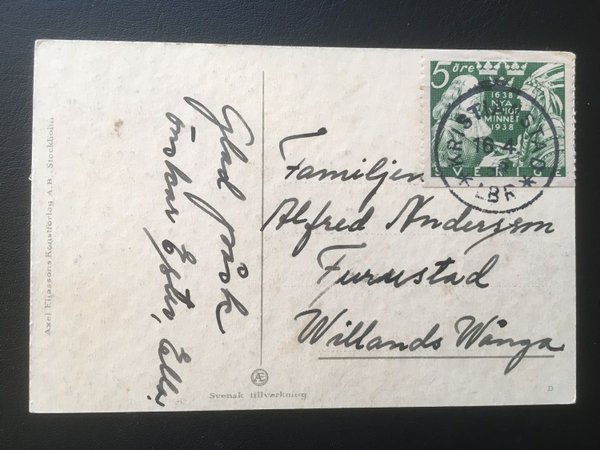 Axel Eliassons Konstförlag A.B. Stockholm
Glad påsk
önskar Ester, Ella,
5 öre
1638
NYA
SVERIGE
MINNET
1938
SVERIGE
KRISTIANSTAD
16.4
LBR
Familjen
Alfred Andersson
Furustad
Willands Wånga
Svensk tillverkning
D